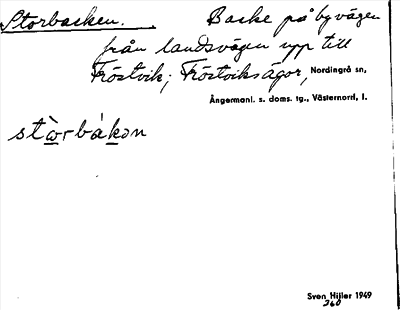 Storbacken. Backe på byvägen
från landsvägen upp till
Fröstvik; Fröstviksägor, Nordingrå sn,
Ångermanl. s. doms. tg., Västernorrl. l.
stὼrbákən
Sven Hiller 1949
260